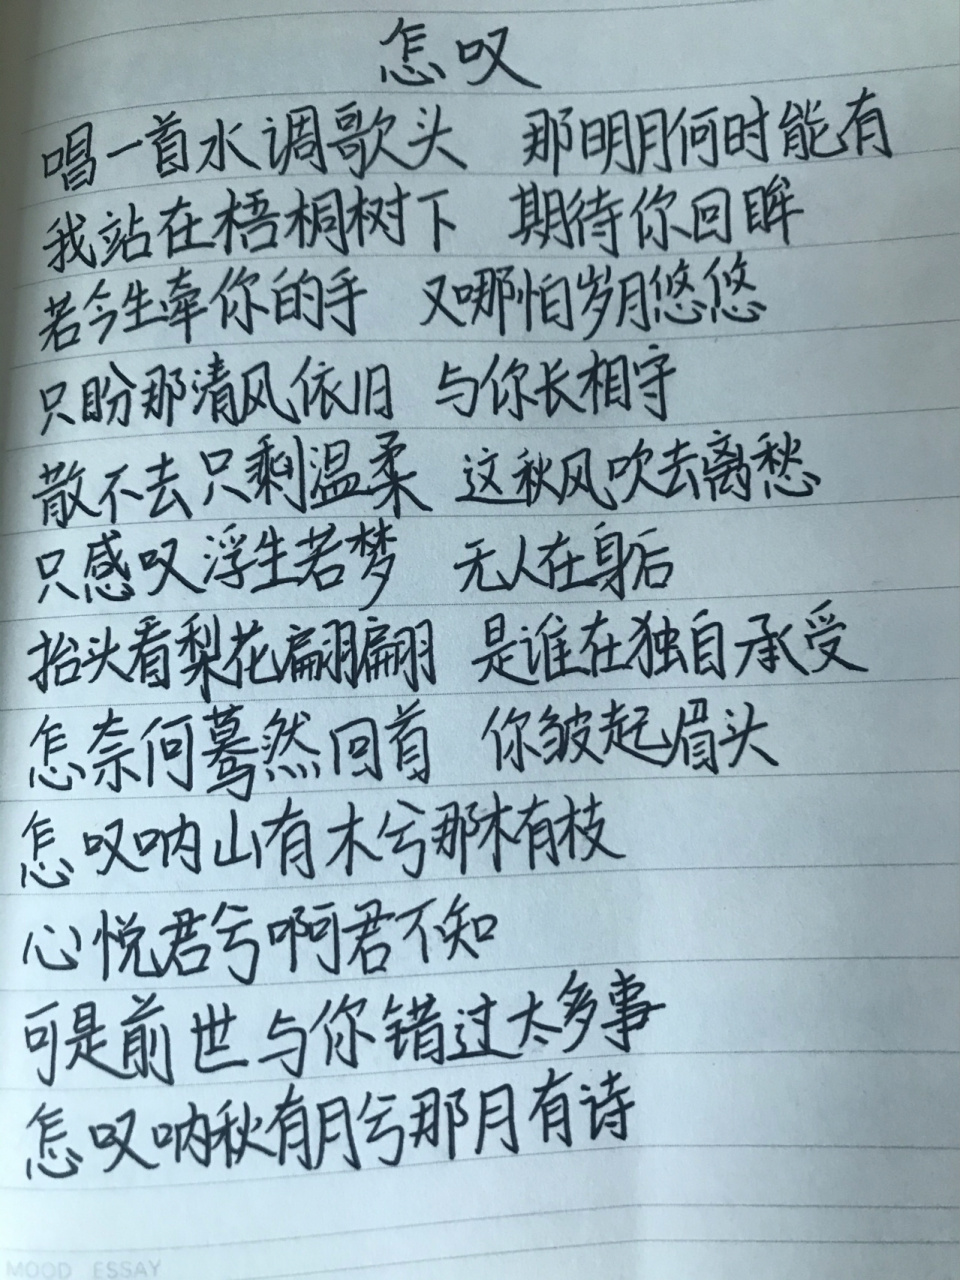 怎叹
唱一首水调歌头 那明月何时能有
我站在梧桐树下 期待你回眸
若今生牵你的手 又哪怕岁月悠悠
只盼那清风依旧 与你长相守
散不去只剩温柔 这秋风吹去离愁
只感叹浮生若梦 无人在身后
抬头看梨花翩翩 是谁在独自承受
怎奈何蓦然回首 你皱起眉头
怎叹呐山有木兮那木有枝
心悦君兮啊君不知
可是前世与你错过太多事
怎叹呐秋有月兮那月有诗
MOOD ESSAY